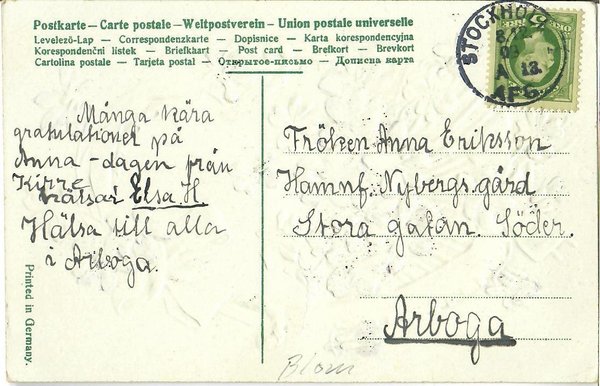 Postkarte – Carte postale – Weltpostverein – Union postale universelle
Levelező-Lap — Correspondenzkarte — Dopisnice — Karta korespondencyjna
Korespondenční listek — Briefkaart — Post card — Brefkort — Brevkort
Cartolina postale — Tarjeta postal — Открытое письмо — Дописна карта
STOCKHOLM
8.12
A 13.
AFG.
Många kära
gratulationer på
Anna-dagen från
Kirre
hälsar Elsa H
Hälsa till alla
i Arboga.
Fröken Anna Eriksson
Hamnf. Nybergs gård
Stora gatan. Söder.
Arboga
Printed in Germany.
Blom